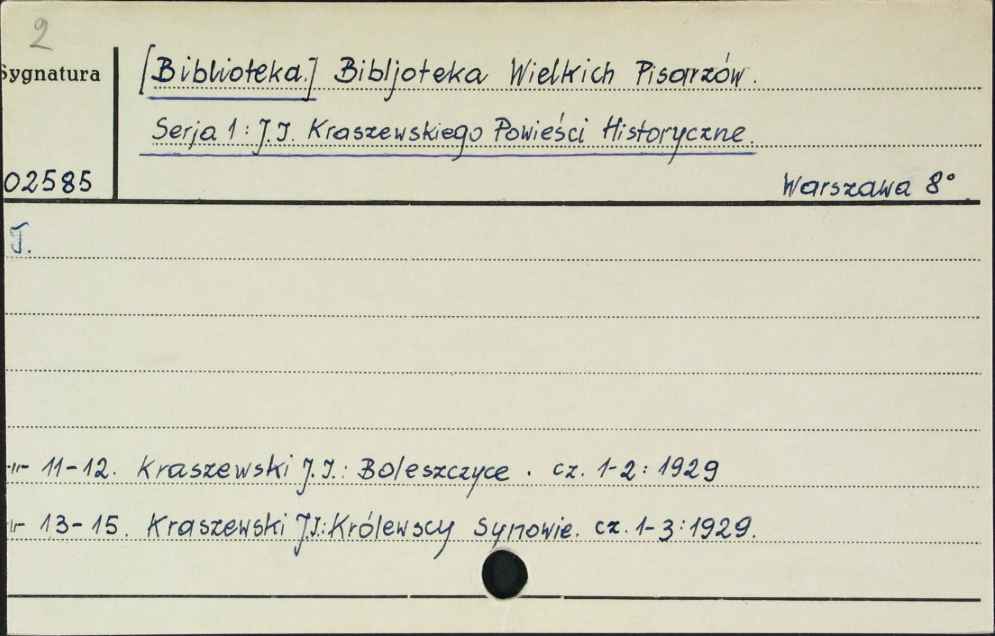 2
Sygnatura
[Biblioteka.] Bibljoteka Wielkich Pisarzów.
Serja 1: J.I. Kraszewskiego Powieści Historyczne.
02585
Warszawa 8°
T.
-„- 11-12. Kraszewski J.I.: Boleszczyce. cz. 1-2: 1929
„- 13-15. Kraszewski J.I.: Królewscy Synowie. cz. 1-3: 1929.